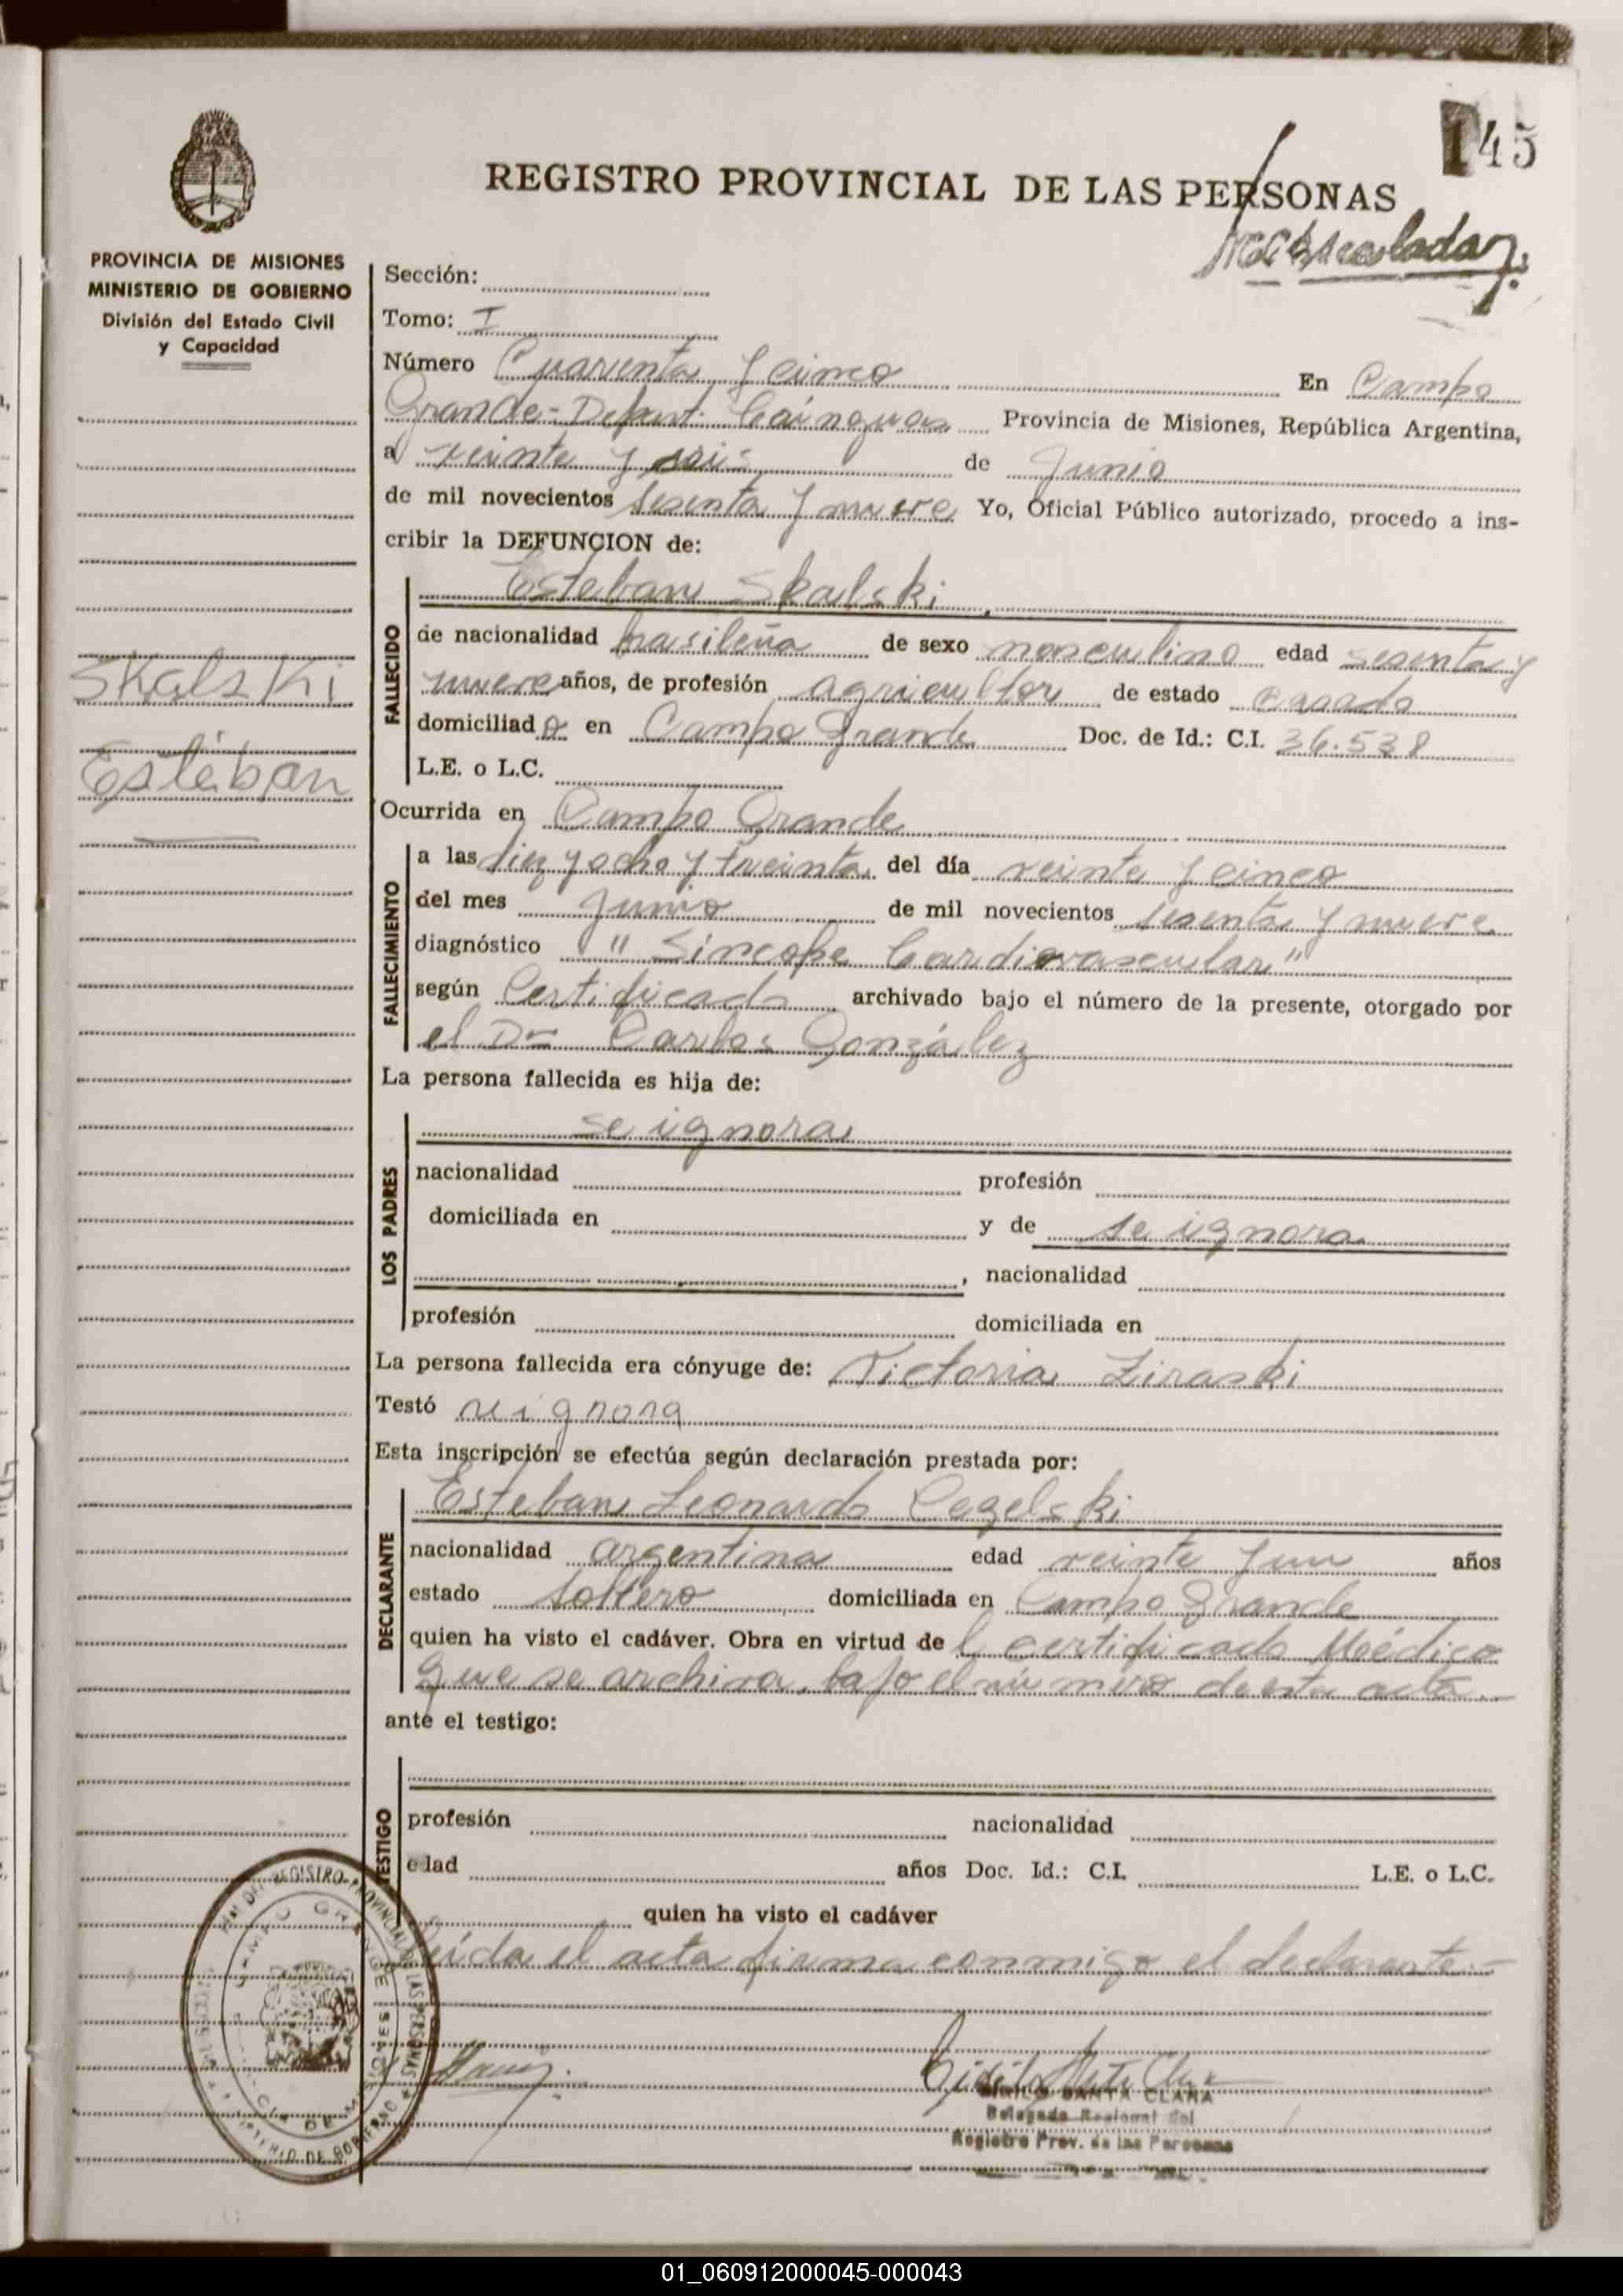 145
REGISTRO PROVINCIAL DE LAS PERSONAS
PROVINCIA DE MISIONES
MINISTERIO DE GOBIERNO
División del Estado Civil
y Capacidad
Skalski
Esteban
Sección:
Tomo: I
Número Cuarenta y cinco En Campo
Grande - Depart. Cainguas Provincia de Misiones, República Argentina,
a veinte y seis de Junio
de mil novecientos sesenta y nueve Yo, Oficial Público autorizado, procedo a ins-
cribir la DEFUNCION de:
FALLECIDO
Esteban Skalski
de nacionalidad brasileña de sexo masculino edad sesenta y
nueve años, de profesión agricultor de estado casado
domiciliado en Campo Grande Doc. de Id.: C.I. 36.538
L.E. o L.C.
Ocurrida en Campo Grande
FALLECIMIENTO
a las diez y ocho y treinta del día veinte y cinco
del mes Junio de mil novecientos sesenta y nueve
diagnóstico "Síncope Cardiovascular"
según Certificado archivado bajo el número de la presente, otorgado por
el Dr Carlos González
La persona fallecida es hija de:
LOS PADRES
se ignora
nacionalidad profesión
domiciliada en y de se ignora
, nacionalidad
profesión domiciliada en
La persona fallecida era cónyuge de: Victoria Ziraski
Testó se ignora
Esta inscripción se efectúa según declaración prestada por:
DECLARANTE
Esteban Leonardo Cezelski
nacionalidad argentina edad veinte y un años
estado soltero domiciliada en Campo Grande
quien ha visto el cadáver. Obra en virtud de l certificado Médico
que se archiva bajo el número de esta acta.-
ante el testigo:
TESTIGO
profesión nacionalidad
edad años Doc. Id.: C.I. L.E. o L.C.
quien ha visto el cadáver
Leída el acta firma conmigo el declarante.-
SANTA CLARA
Delegado Regional del
Registro Prov. de las Personas
01_060912000045-000043